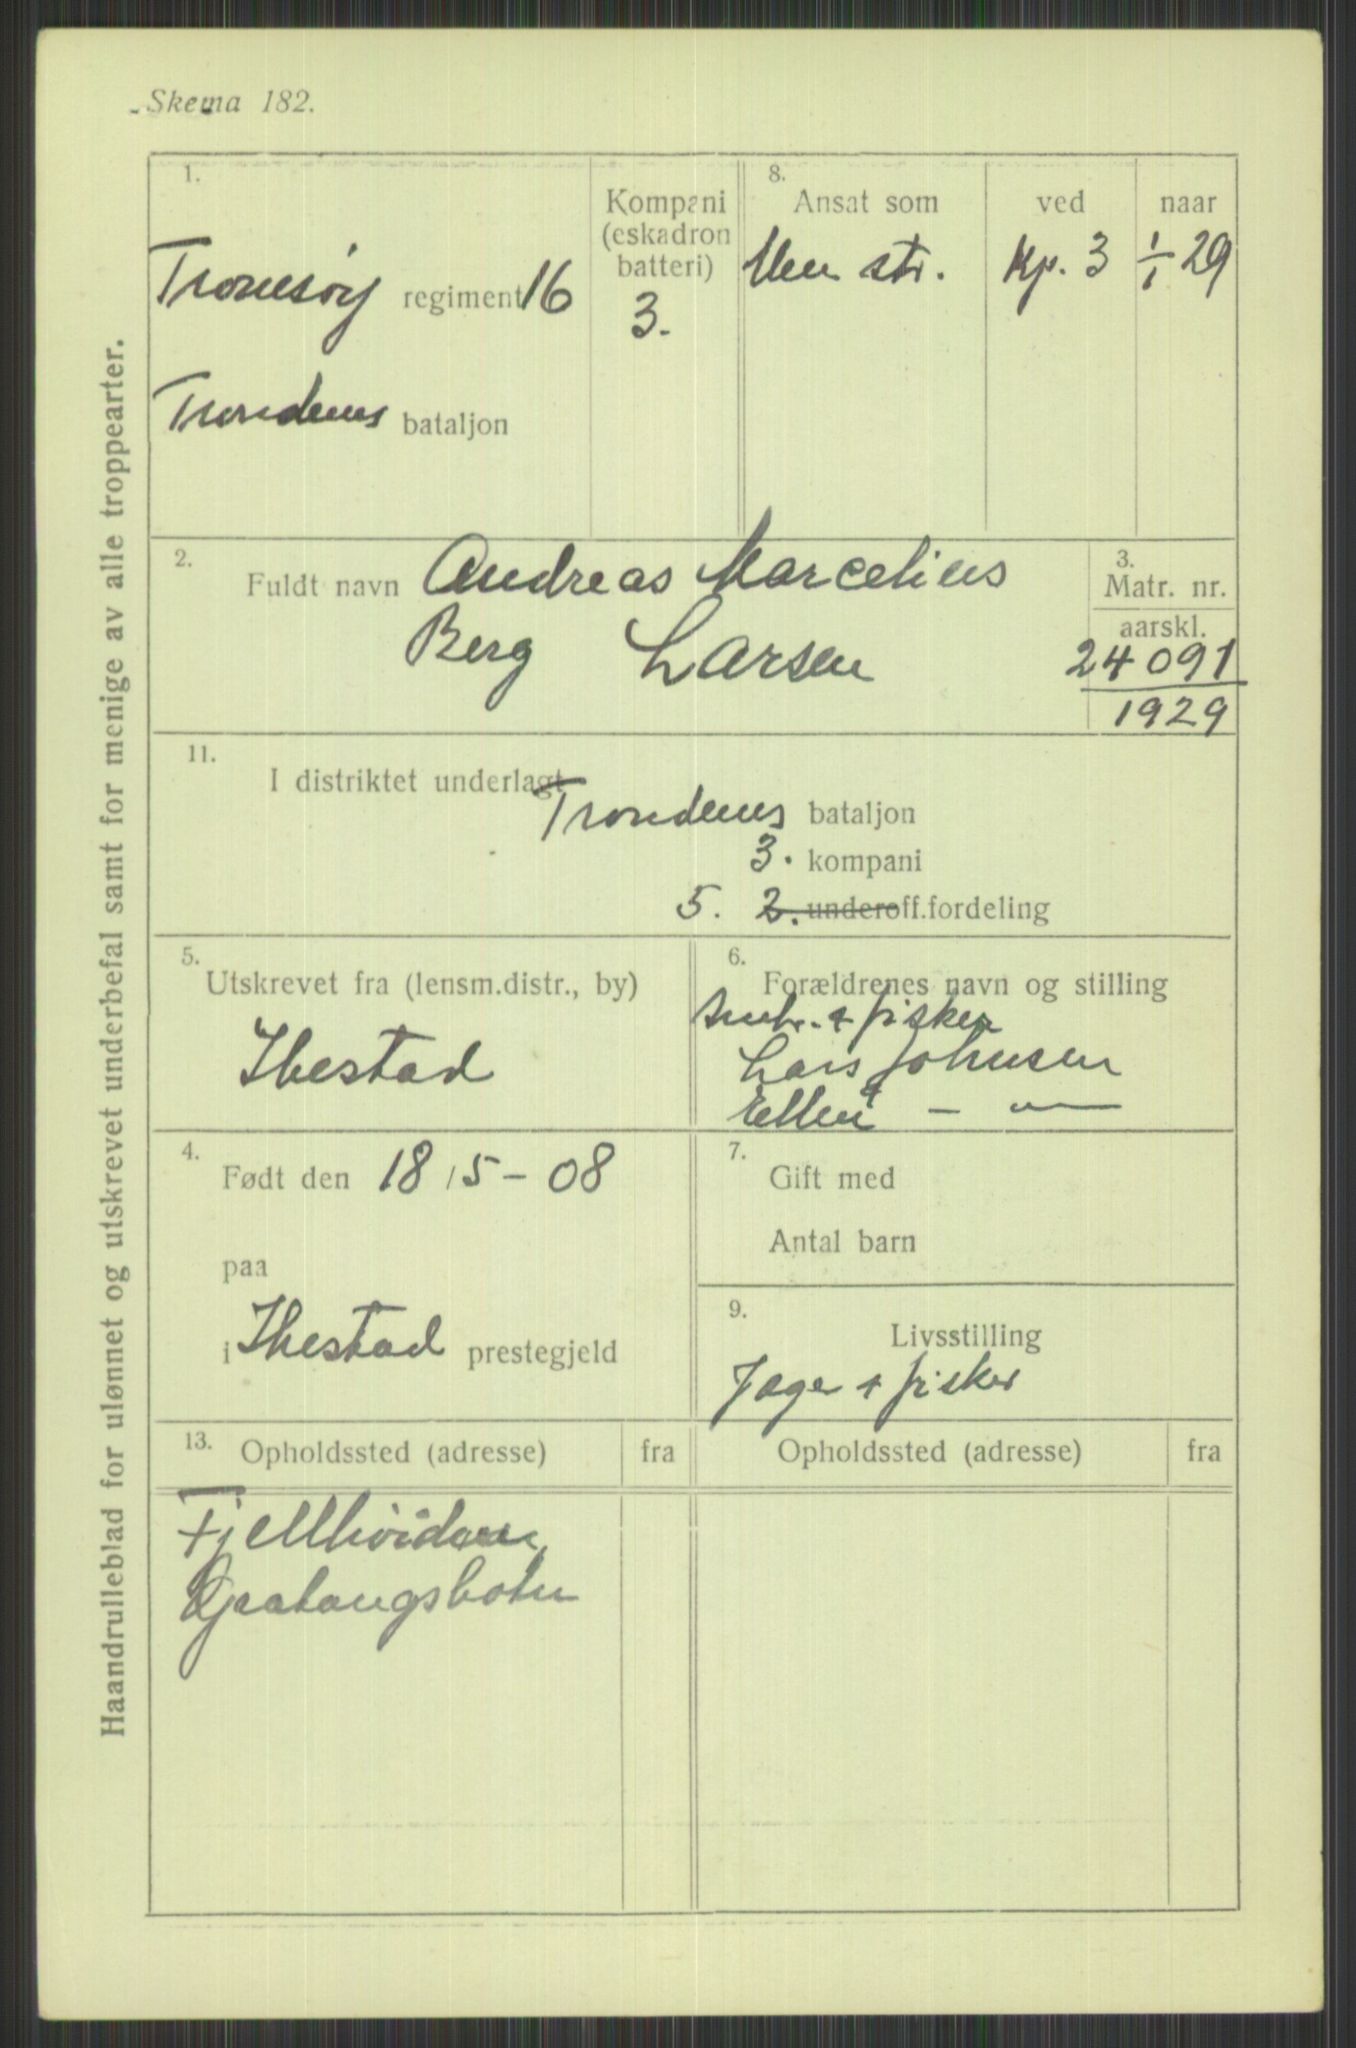 Skema 182.
Haandrulleblad for ulønnet og utskrevet underbefal samt for menige av alle troppearter.
1.
Tromsøy regiment 16
Trondenes bataljon
Kompani
(eskadron
batteri)
3.
8.
Ansat som
ved
naar
Men str.
Kp. 3
1/1 29
2.
Fuldt navn Andreas Marcelius
Berg Larsen
3.
Matr. nr.
aarskl.
24091
1929
11.
I distriktet underlagt
Trondenes bataljon
3. kompani
5. 2. underoff.fordeling
5.
Utskrevet fra (lensm.distr., by)
Ibestad
6.
Forældrenes navn og stilling
+ fisker
Lars Johnsen
+
Ellen — —
4.
Født den 18/5-08
paa
i Ibestad prestegjeld
7.
Gift med
Antal barn
9.
Livsstilling
Jager + fisker
13.
Opholdssted (adresse)
fra
Opholdssted (adresse)
fra
Fjellhøidan
Gratangsbotn